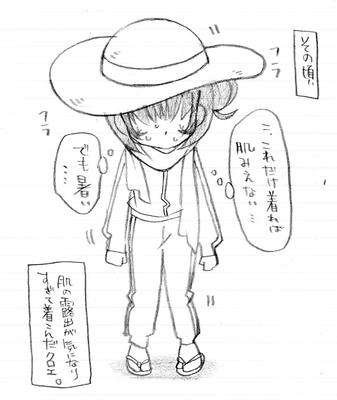 その頃、
フラ
フラ
…、これだけ着れば
肌みえない…
でも暑い
……
肌の露出が気になり
すぎて着こんだクロエ。